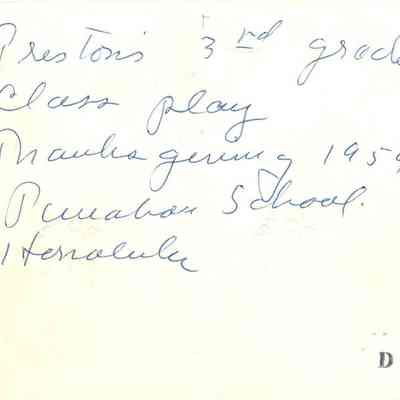 Preston's 3rd grade
Class play
Thanksgiving 1959
Punahou School.
Honolulu
D